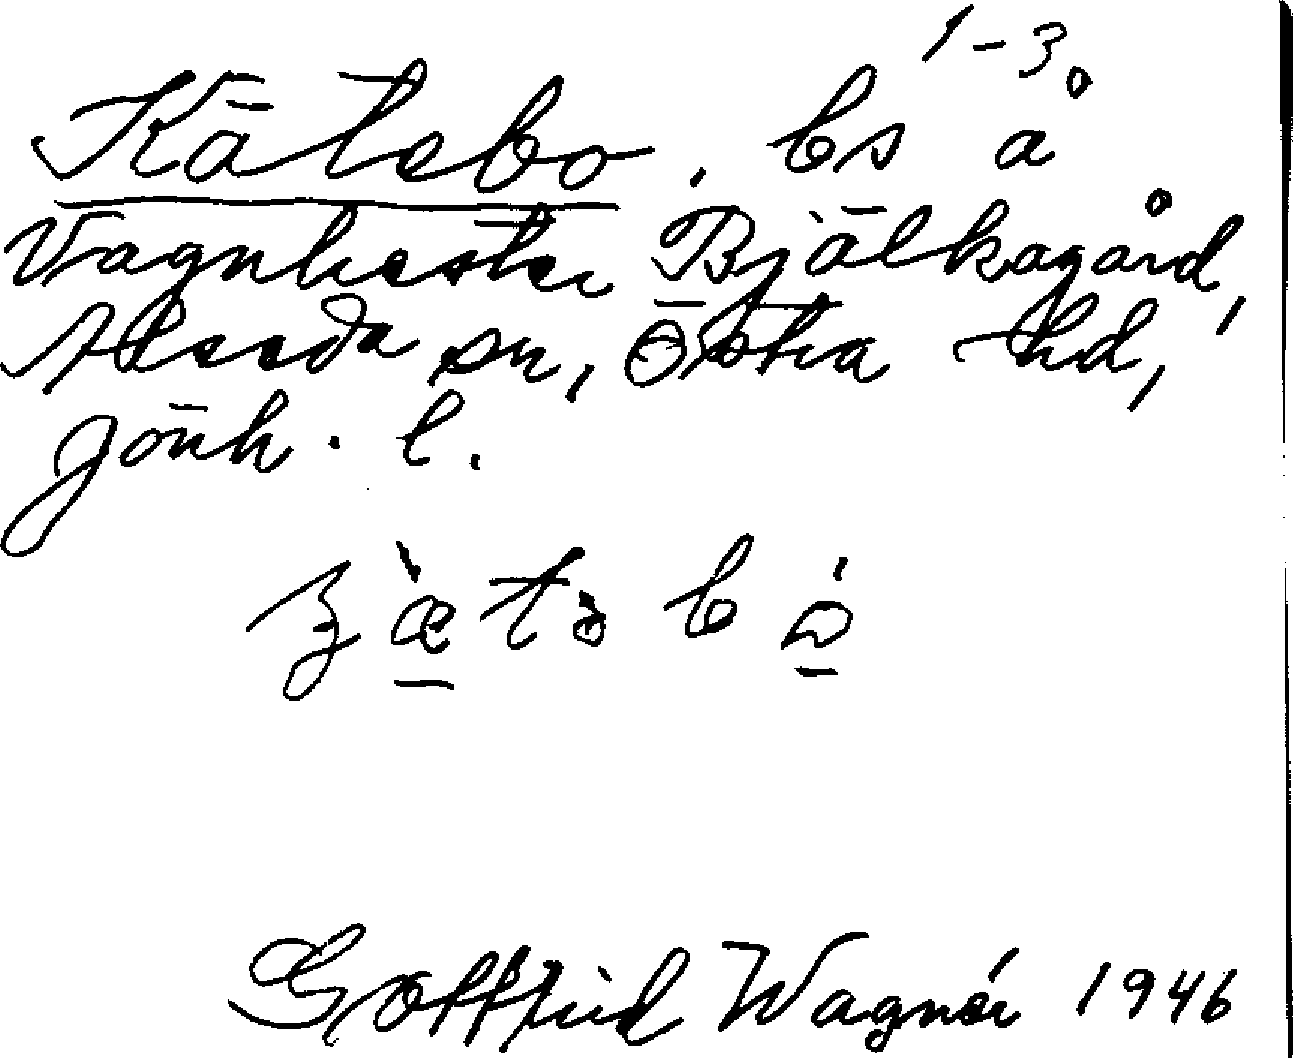 1-3
Kätebo, bs å
Vagnhester Bjälkagård,
Alseda sn, Östra hd,
Jönk. l.
Gottfrid Wagnér 1946